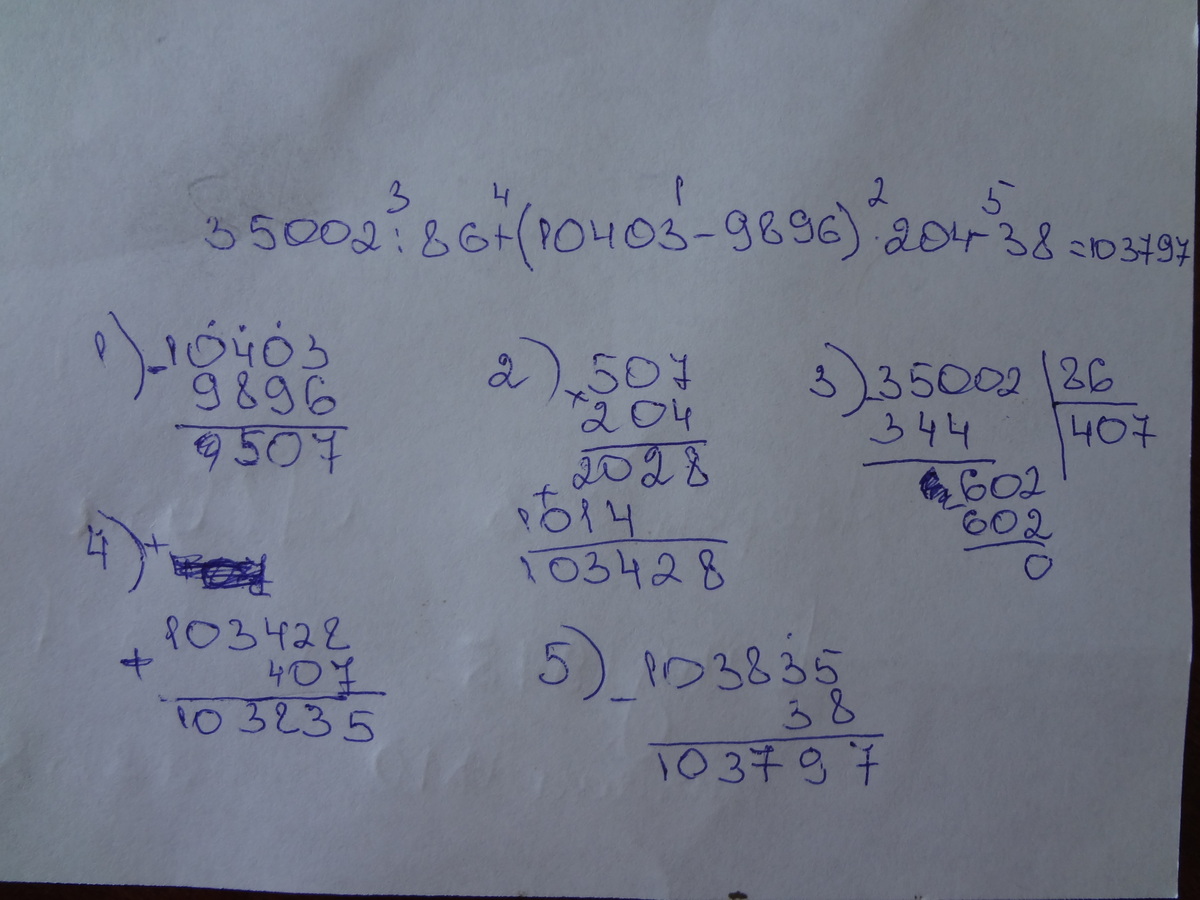 35002:86+(10403-9896)·204-38=103797
3 4 1 2 5
1) -10403
9896
507
2) ×507
204
2028
+
1014
103428
3) -35002 | 86
344 | 407
-602
602
0
4) +
103428
+ 407
103835
5) -103835
38
103797